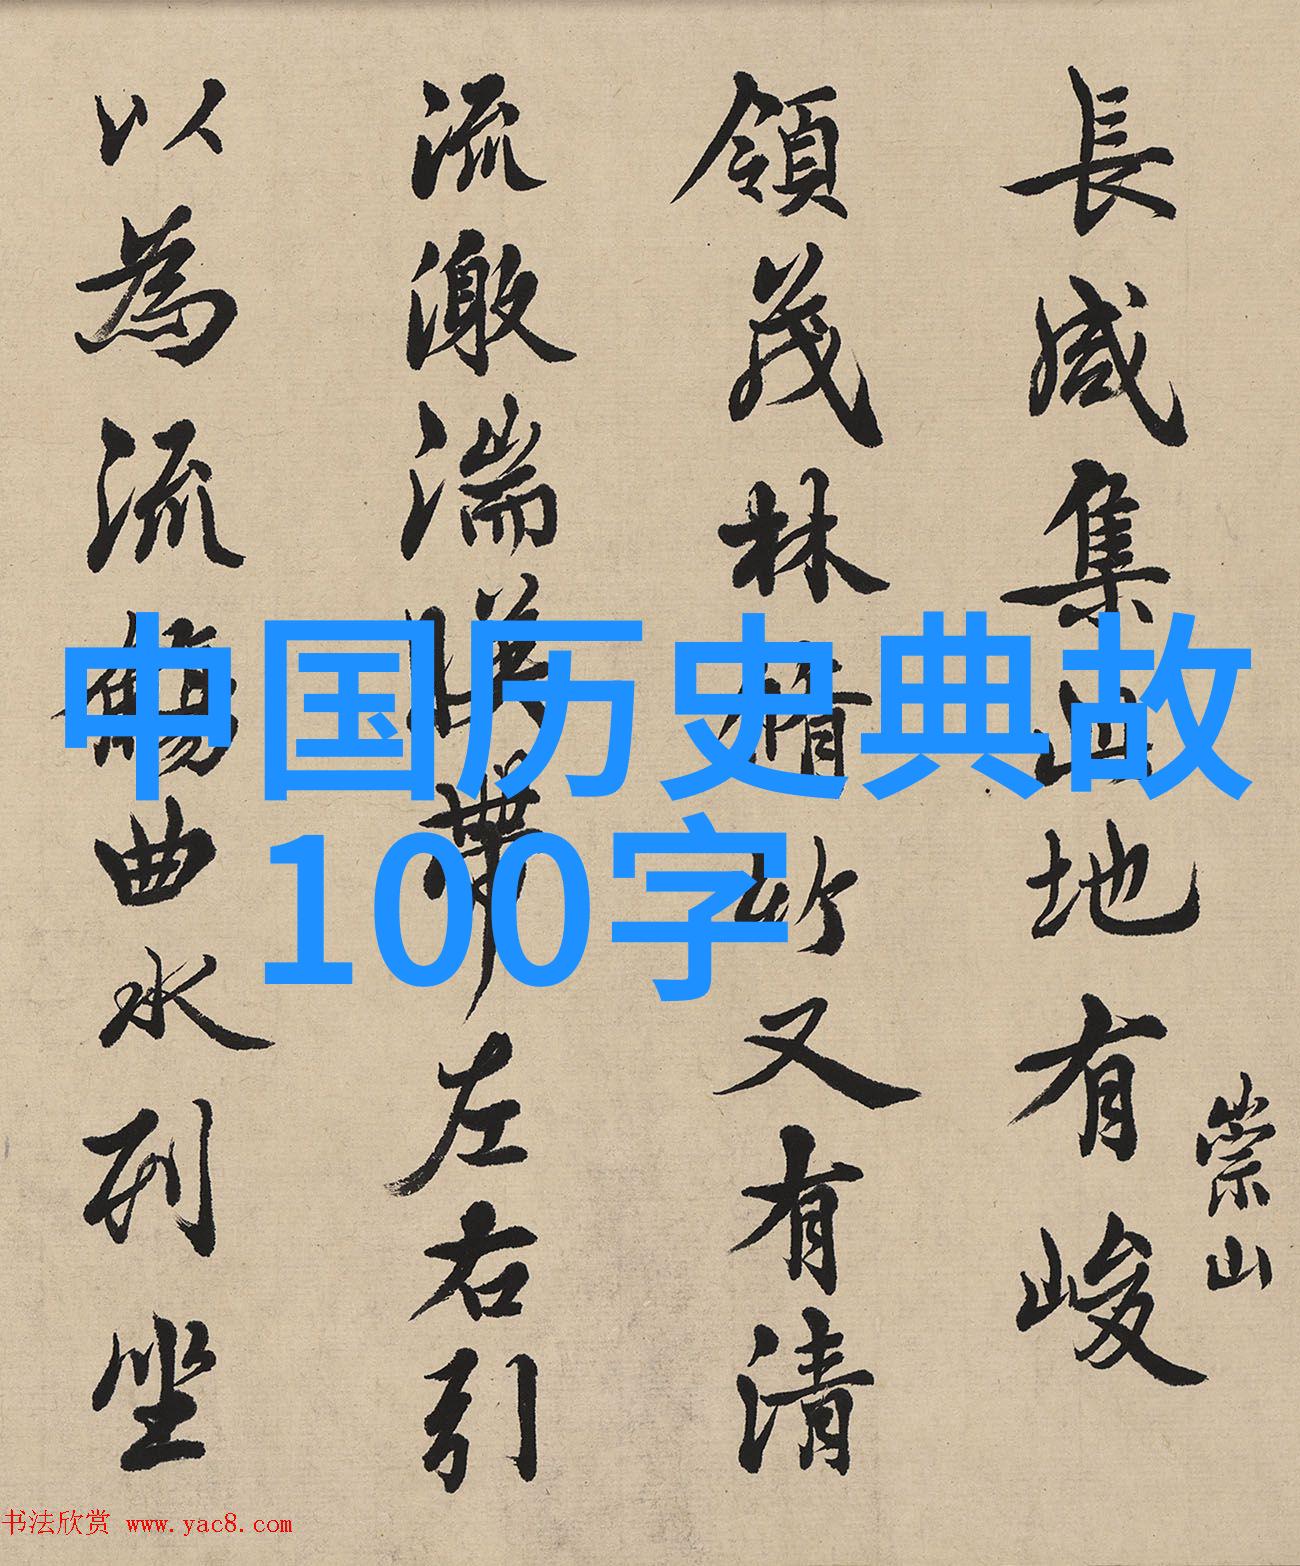 長咸集此地有峻
崇山
領茂林脩竹又有清
流激湍暎帶左右引
以為流觴曲水列坐
中国历史典故
100字
书法欣赏 www.yac8.com